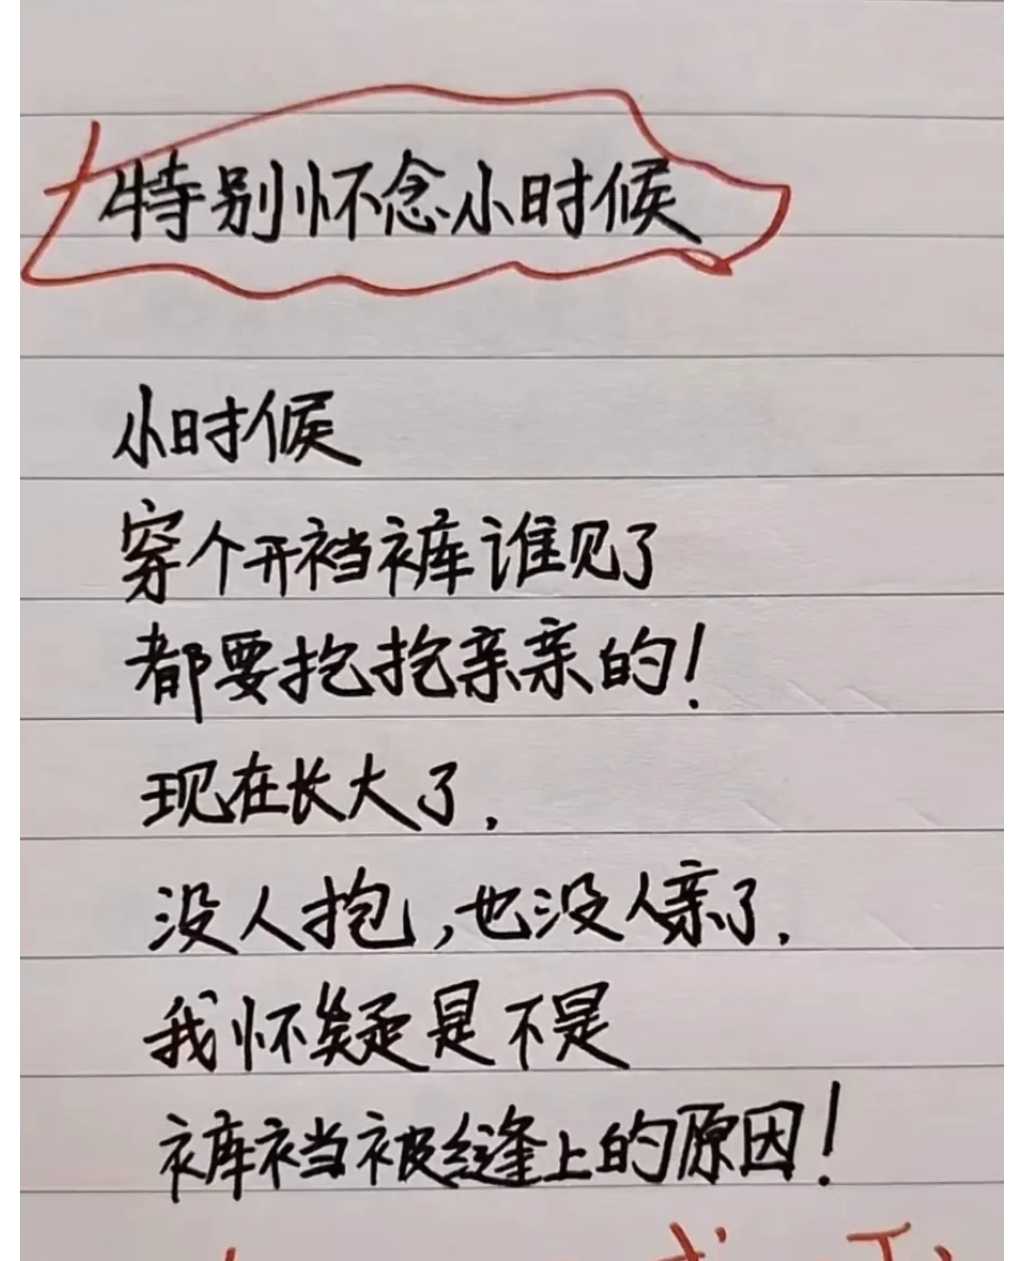 特别怀念小时候
小时候
穿个开裆裤谁见了
都要抱抱亲亲的!
现在长大了.
没人抱,也没人亲了.
我怀疑是不是
裤裆被缝上的原因!